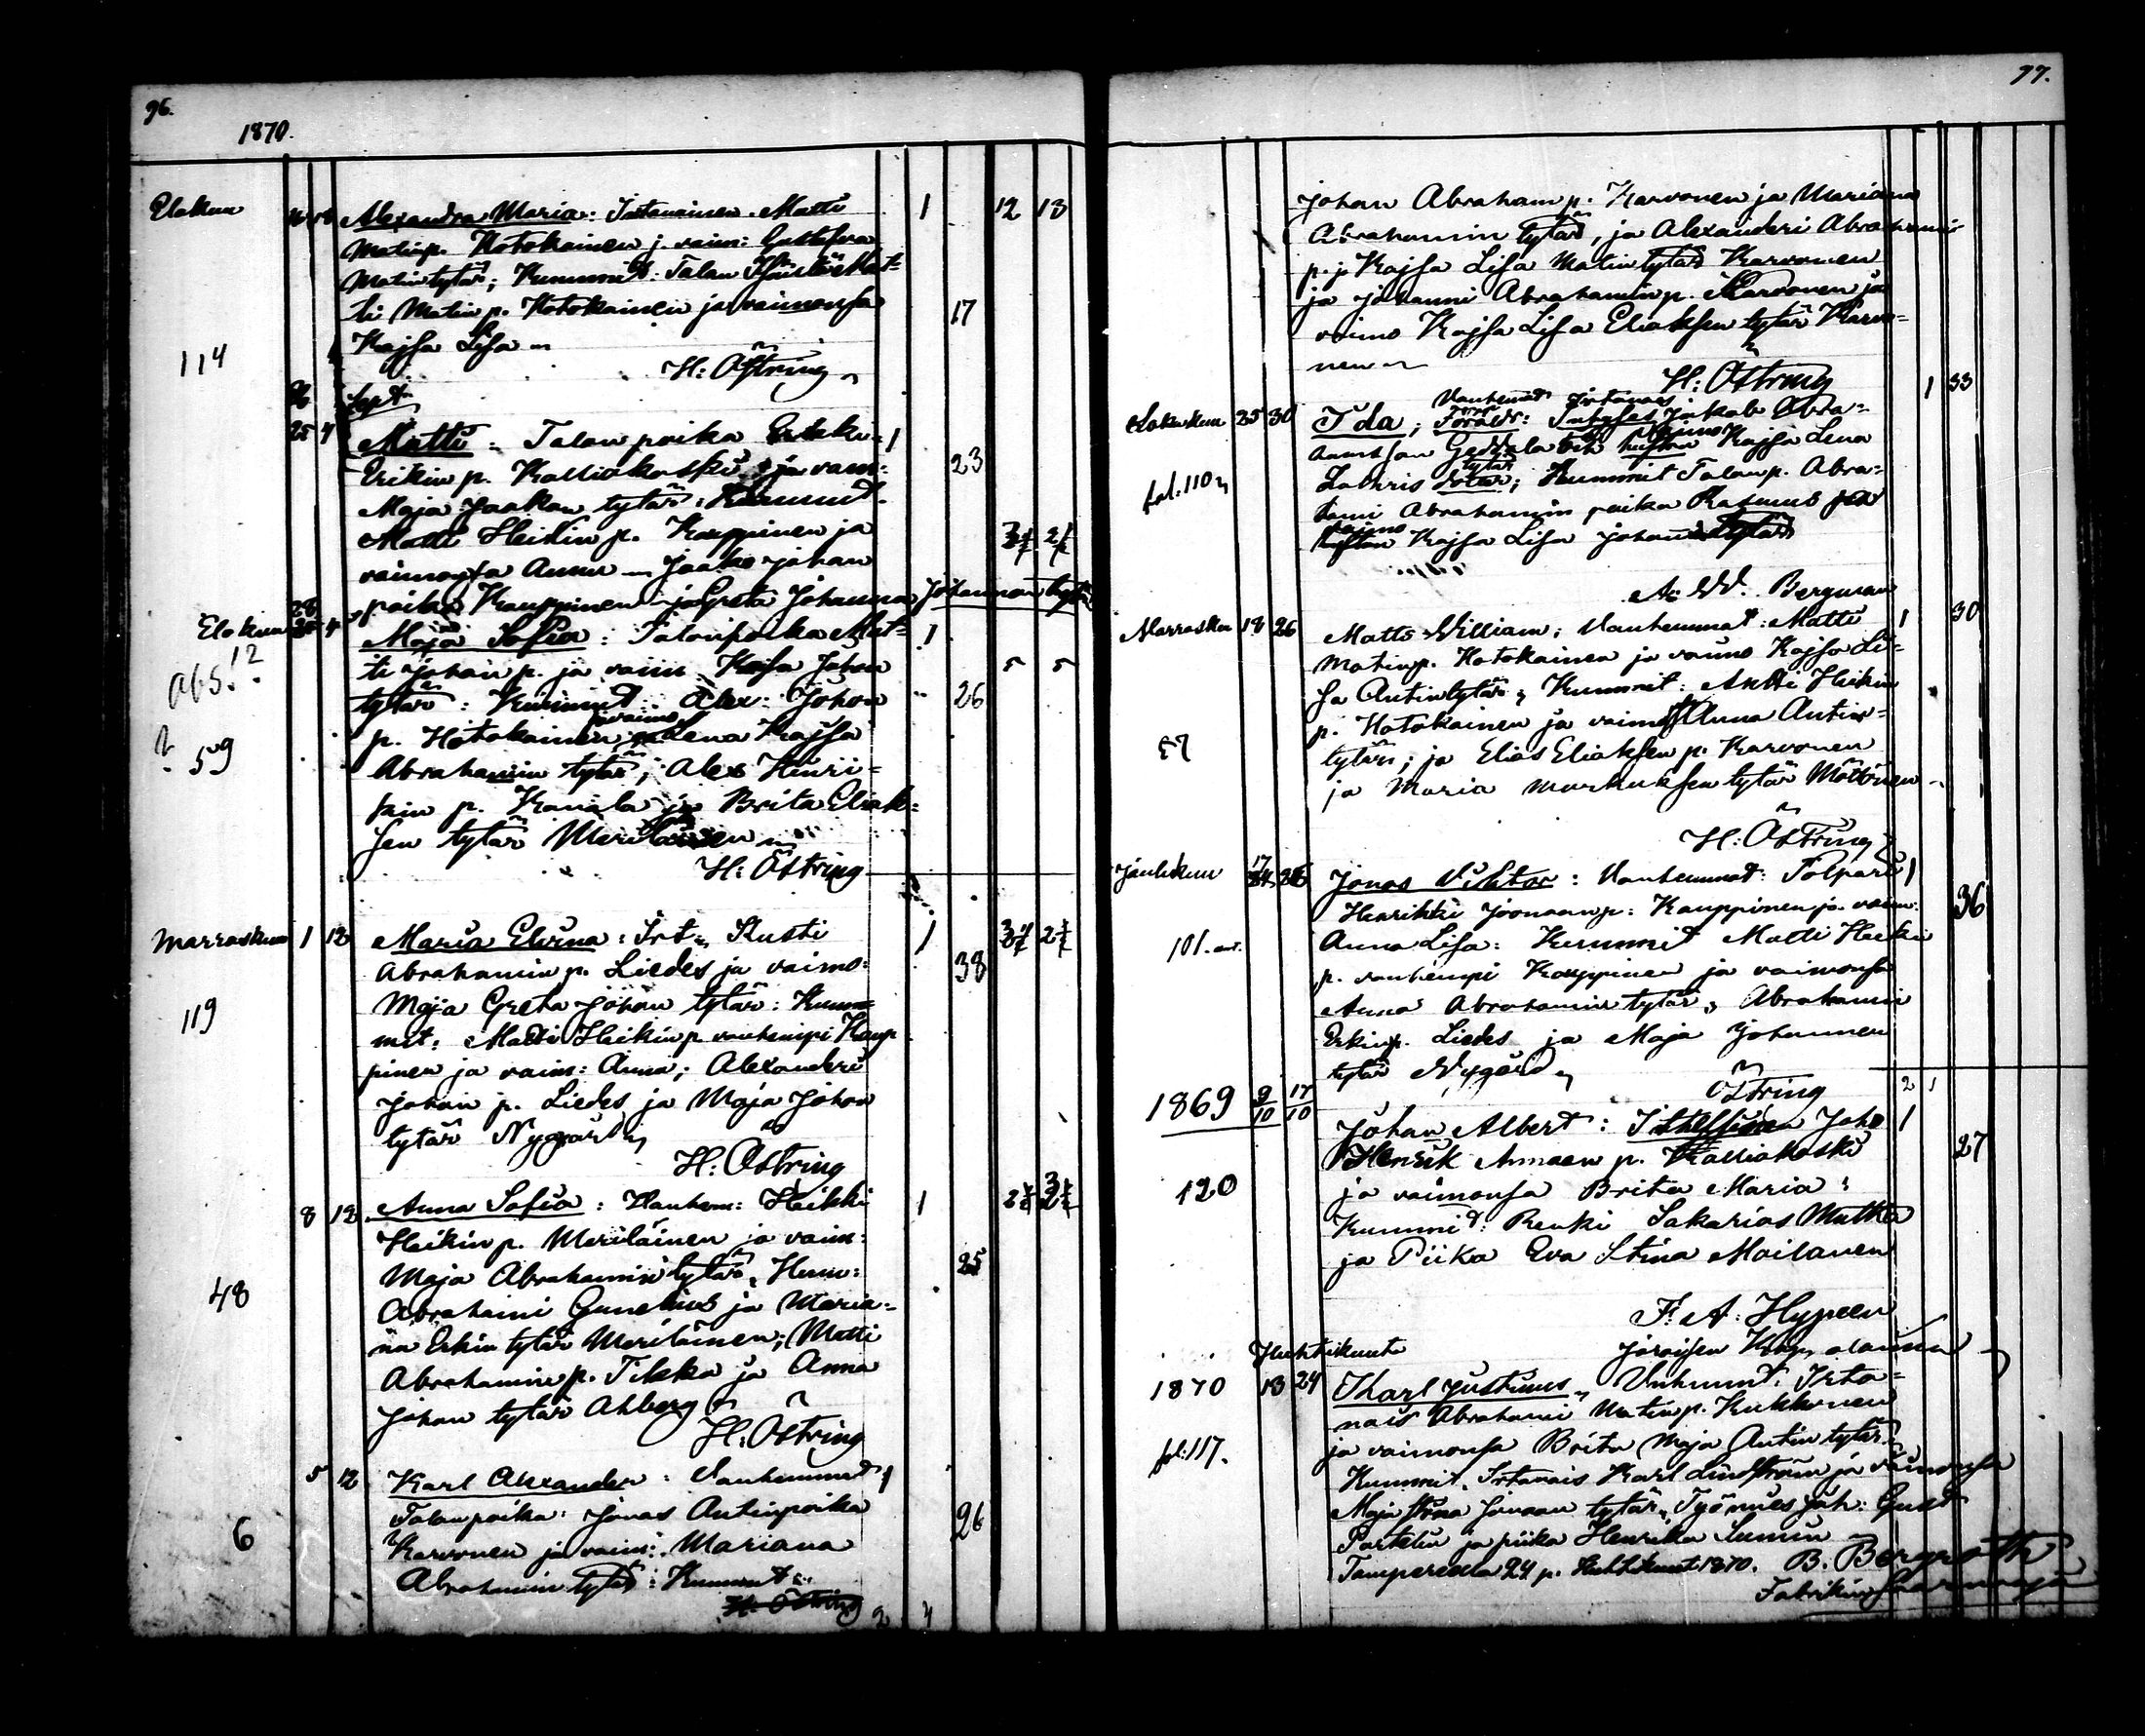 96.
1870.
Elokuu
Alexandra Maria: Matti
Matinp. Hotokainen j. vaim: Gustafva
Matintytär; Kummit: Talon Mat-
ti Matin p. Hotokainen ja vaimonsa 17
Kajsa Lisa
1 12 13
114
H: Östring
Sept.
25 4 Matti: Talon poika Erkki 1
Erikin p. Kalliokoski ja vaim: 23
Maja Jaakon tytär: Kummit.
Matti Heikin p. Kauppinen ja
vaimonsa Anna Jaako Johan
poika Kauppinen ja Greta Johanna Johannan tytär
Elokuu
Maja Sofia: Talonpoika Mat- 1
ti Johan p. ja vaim. Kajsa Johan 5 5
tytär: Kummit Alex: Johan 26
p. Hotokainen ja vaimo Lena Kajsa
Abrahamin tytär; Alex Henri-
kin p. Kanala ja Brita Eliak-
sen tytär Meriläinen
abs!?
? 59
H: Östring
Marraskuu 1 12 Maria Elvina: Irt. Kusti 1
Abrahamin p. Liedes ja vaimo: 38
Maja Greta Johan tytär: Kum-
mit: Matti Heikin p. vanhempi Kaup
pinen ja vaim: Anna; Alexanderi
Johan p. Liedes ja Maja Johan
tytär Nygård
119
H: Östring
8 12 Anna Sofia: Vanhem: Heikki 1
Heikin p. Meriläinen ja vaim:
Maja Abrahamin tytär, Kum: 25
Abrahami Gunelius ja Maria-
na Erkin tytär Meriläinen; Matti
Abrahamin p. Tikka ja Anna
Johan tytär Ahlberg
48
H: Östring
5 12 Karl Alexander: Vanhemmat 1
Talonpoika: Jonas Antinpoika 26
Karvonen ja vaim: Mariana
Abrahamin tytär: Kummit:
6
H. Östring
77.
Johan Abraham p. Karvonen ja Mariana
Abrahamin tytär, ja Alexanderi Abrahamin
p. j. Kajsa Lisa Matin tytär Karvonen
ja Johanni Abrahamin p. Karvonen ja
vaimo Kajsa Lisa Eliaksen tytär Karvo-
nen
H: Östring
1 33
Vanhemat
Lokakuu 25 30 Ida; Jakob Abra-
Kajsa Lena
tytär; Kummit Talonp. Abra-
hami Abrahamin poika Rasmus ja
vaimo Kajsa Lisa Johan tytär
fol: 110
A. W. Bergman
Marraskuu 18 26 Matts William: Vanhemmat: Matti 1 30
Matinp. Hotokainen ja vaimo Kajsa Li-
sa Antintytär; Kummit: Antti Heikin
p. Hotokainen ja vaimo Anna Antin-
tytär; ja Elias Eliaksen p. Karvonen
ja Maria Markuksen tytär Möttönen
57
H: Östring
Joulukuu Jonas Viktor: Vanhemmat: Tolpari 1
Henrikki Joonaanp: Kauppinen ja vaim: 36
Anna Lisa: Kummit Matti Heikin
p. vanhempi Kauppinen ja vaimonsa
Anna Abrahamin tytär; Abrahami
Erkinp. Liedes ja Maja Johannen
tytär Nygård
101.
Östring
2 1
1869 9/10 17/10 Johan Albert: Itsellinen Joh 1
Henrik Annaen p. Kalliokoski 27
ja vaimonsa Brita Maria:
Kummit: Renki Sakarias Mutka
ja Piika Eva Stina Moilanen
120
F. A. Hypeen
Joroisen
Huhtikuuta
1870 13 24 Karl Justinus, Vanhmt: Irto-
nais Abrahami Matin p. Kukkonen
ja vaimonsa Brita Maja Antin tytär.
Kummit. Irtonais Karl Lindström ja vaimonsa
Maja Stina Jonaan tytär, Työmies Joh: Gust
Partelin ja piika Henrika Lumin
Tampereella 24 p. Huhtikuuta 1870. B. Bergroth
Fabrikin Saarnaaja
fol: 117.